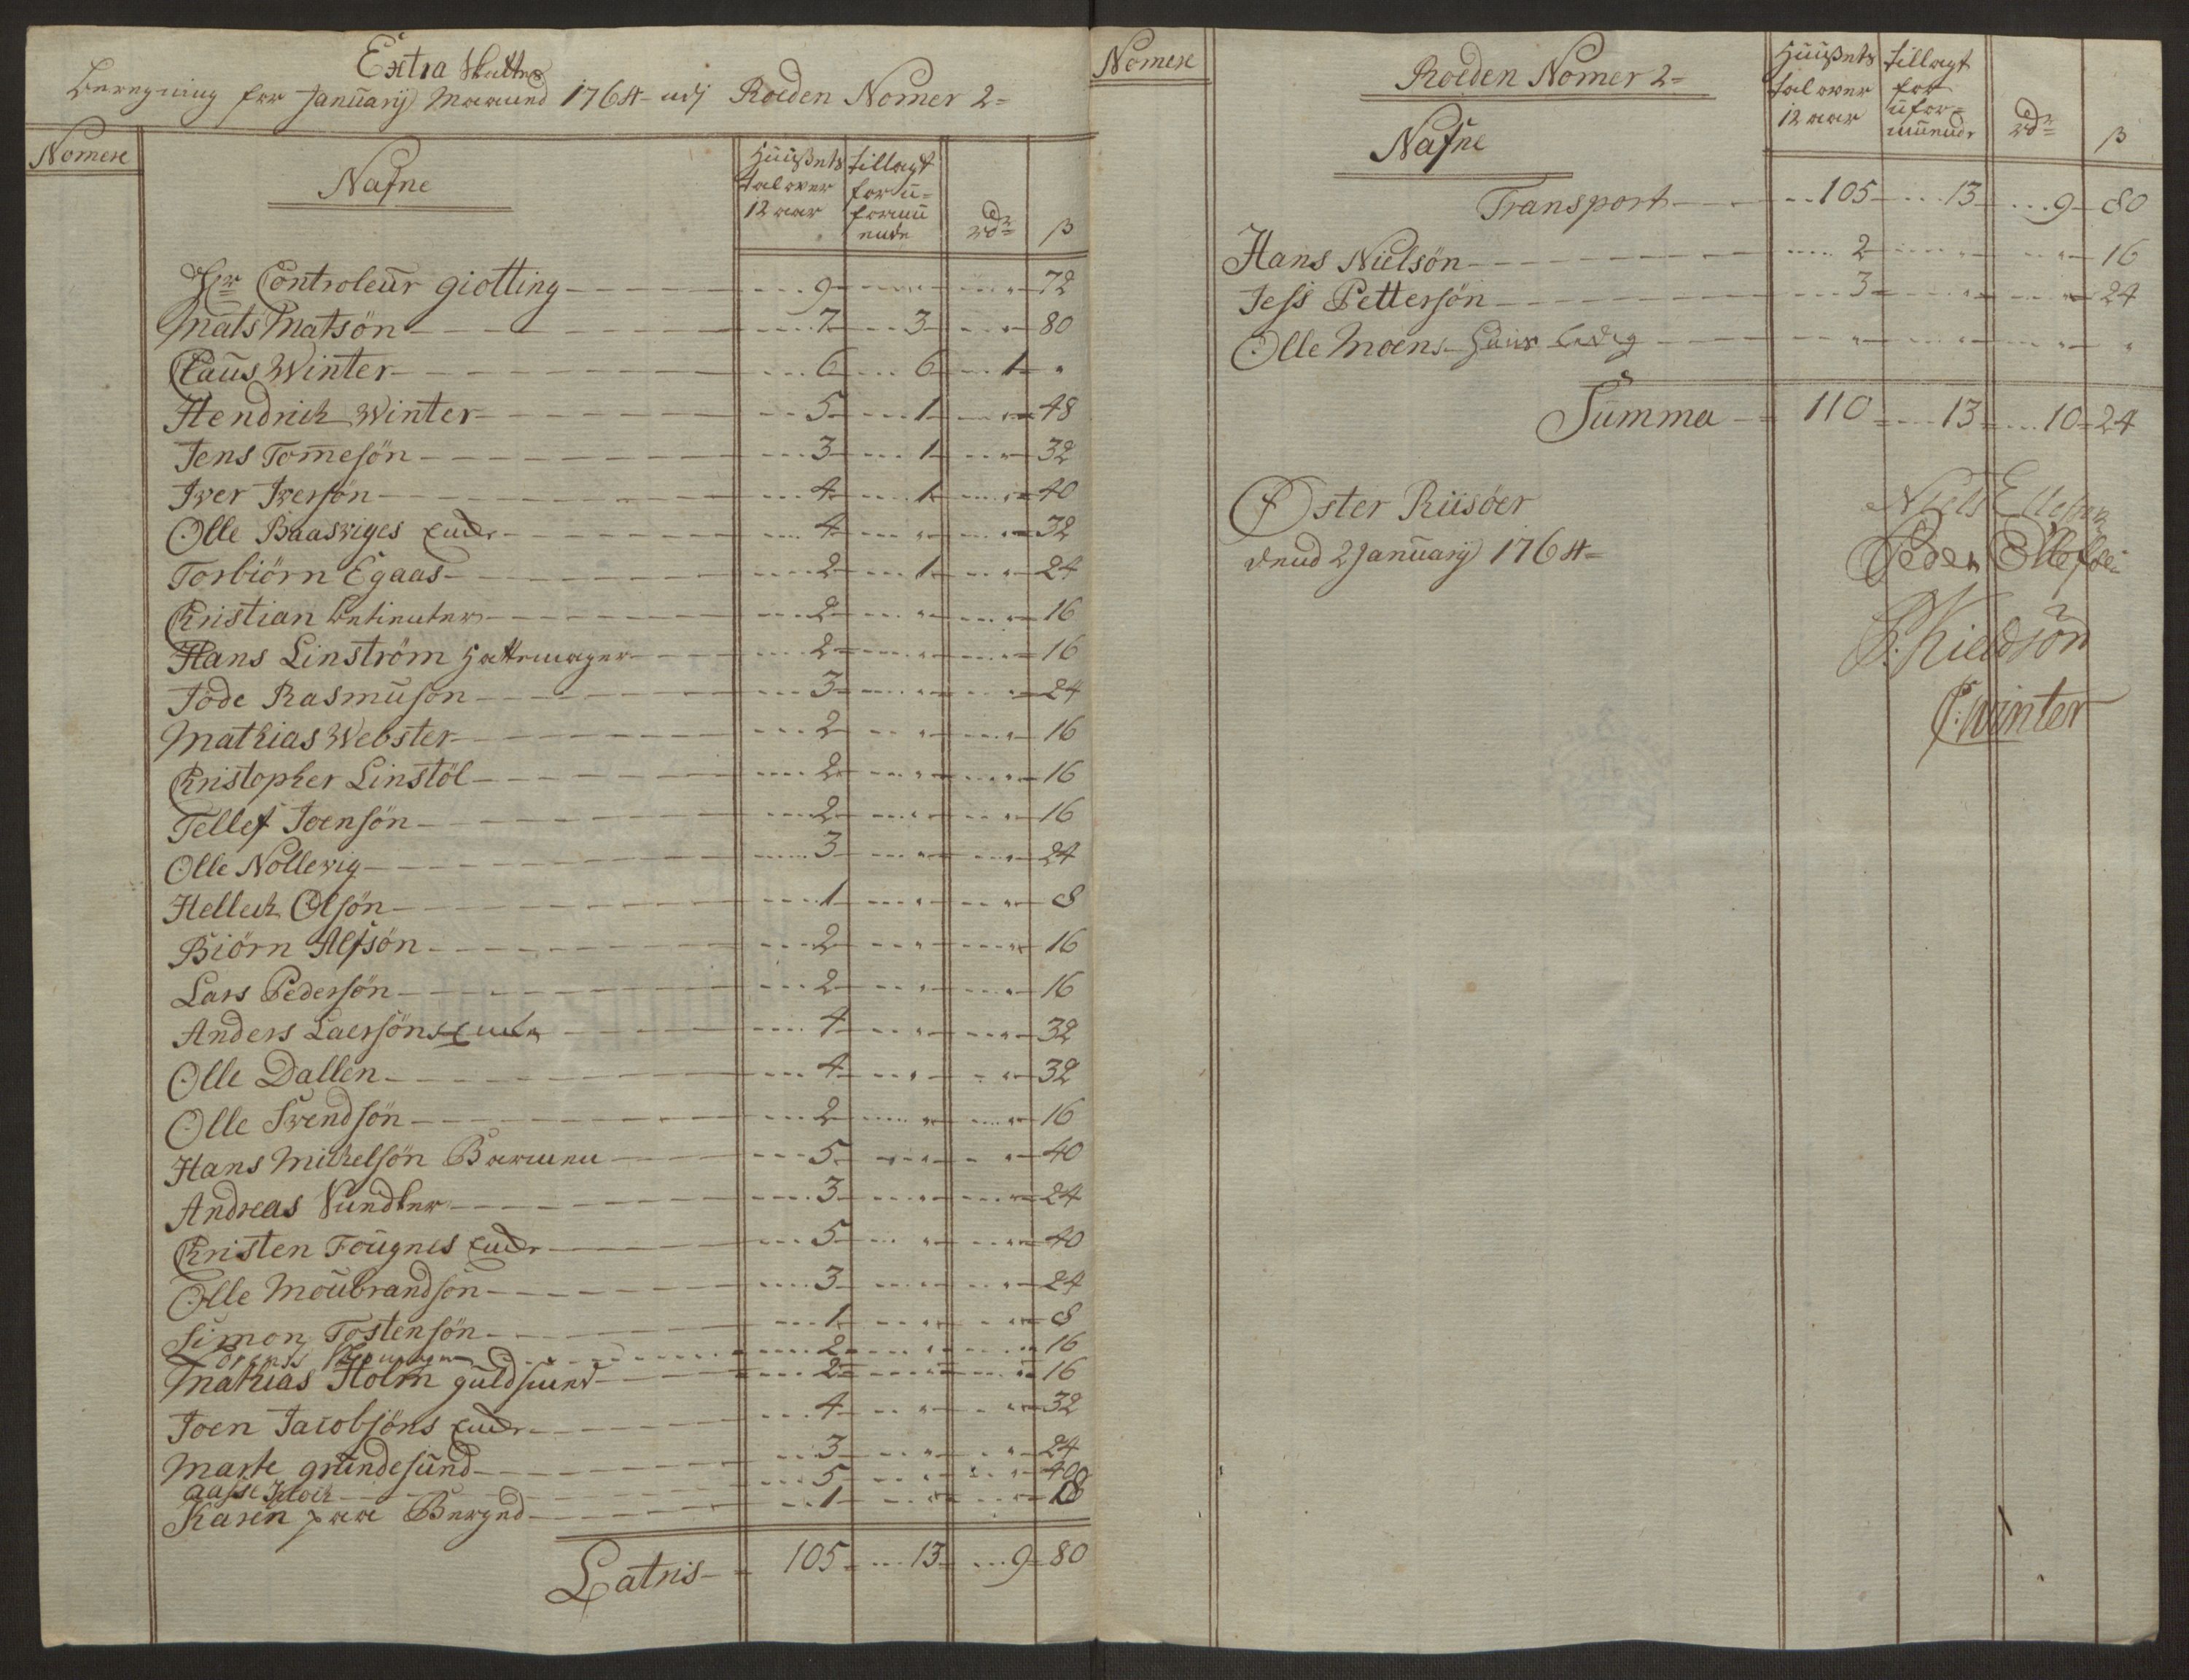 Extra Skattes
Beregning for January Maaned 1764 udj Roeden Nomer 2=
Nomere
Nafne
Huusets tal over 12 aar
tillagt for u=formuende
rdr
β
Hr Controleur giotting 9 " " 72
Mats Matsön 7 3 " 80
Claus Winter 6 6 1 "
Hendrich Winter 5 1 " 48
Jens Tomesön 3 1 " 32
Iver Iversön 4 1 " 40
Olle Baasviges Encke 4 " " 32
Torbiörn Egaas 2 1 " 24
Christian 2 " " 16
Hans Linström Hattemager 2 " " 16
Tode Rasmuson 3 " " 24
Mathias Webster 2 " " 16
Christopher Linstöl 2 " " 16
Tellef Joensön 2 " " 16
Olle Nollevig 3 " " 24
Hellech Olsön 1 " " 8
Biörn Alfsön 2 " " 16
Lars Pedersön 2 " " 16
Anders Laersöns Encke 4 " " 32
Olle Dallen 4 " " 32
Olle Svendsön 2 " " 16
Hans Michelsön 5 " " 40
Andreas 3 " " 24
Christen Fougnes Encke 5 " " 40
Olle Moubrandsön 3 " " 24
Simon Tostensön 1 " " 8
2 " " 16
Mathias Holm guldsmed 2 " " 16
Joen Jacobsöns Encke 4 " " 32
Marte grundesund 3 " " 24
Aasse 5 " " 40
Karen paa Berged 1 " " 8
Latris 105 13 9 80
Nomere
Roeden Nomer 2=
Nafne
Huusets tal over 12 aar
tillagt for ufor=muende
rdr
β
Transport 105 13 9 80
Hans Nielsön 2 " " 16
Jess Pettersön 3 " " 24
Olle Moens Huus ledig " " " "
Summa 110 13 10 24
Øster Riisöer
dend 2 January 1764=
Niels Ellefsen
Peder Ollefsen
P. Kieldsön
C: Winter